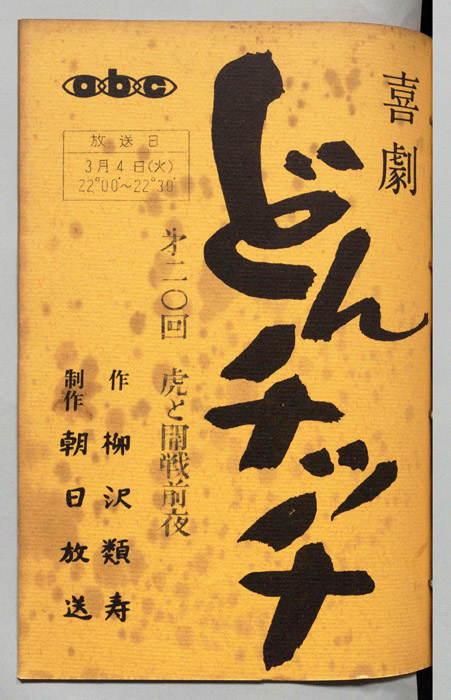 喜劇
どんチッチ
abc
放送日
3月4日(火)
22°00'~22°30'
才二〇回 虎と開戦前夜
作 柳沢類寿
制作 朝日放送